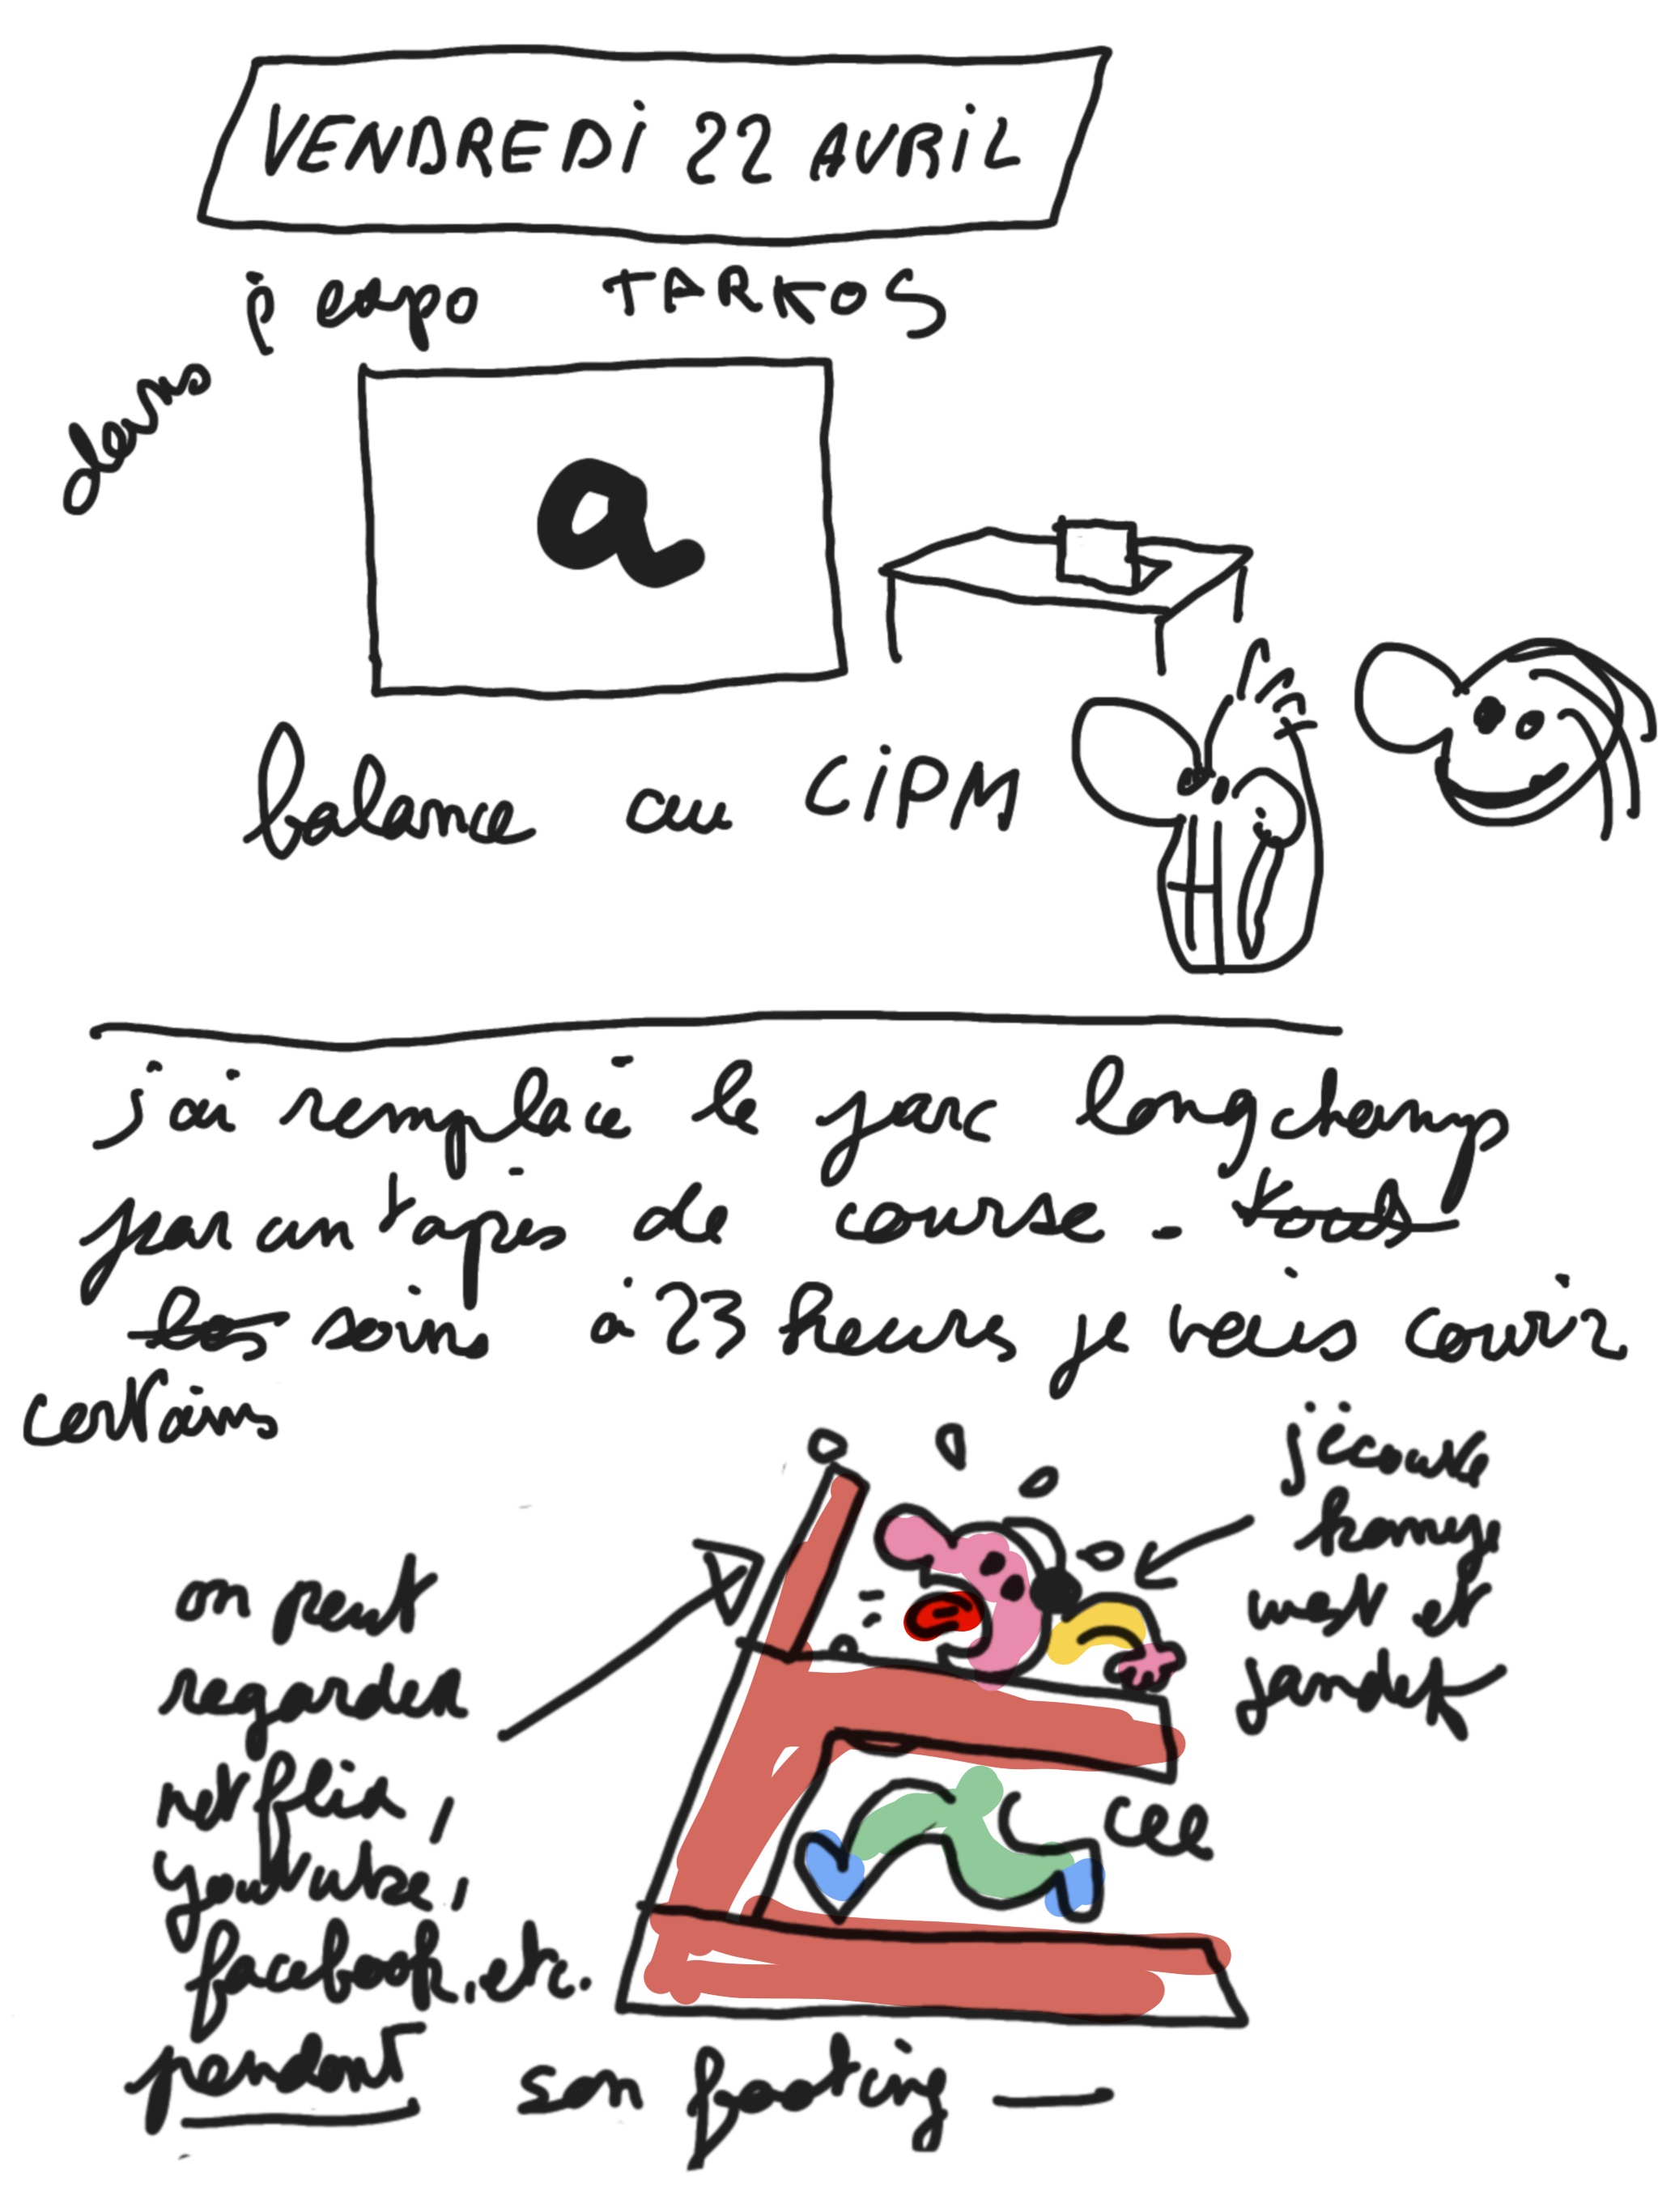 VENDREDI 22 AVRIL
dans l'expo TARKOS
a
balance au CIPM
j'ai remplacé le parc longchamp
par un tapis de course - tous
les soirs à 23 heures je vais courir
certains
j'écoute
kanye
west et
jandek
on peut
regarder
netflix,
youtube,
facebook, etc.
pendant son footing —